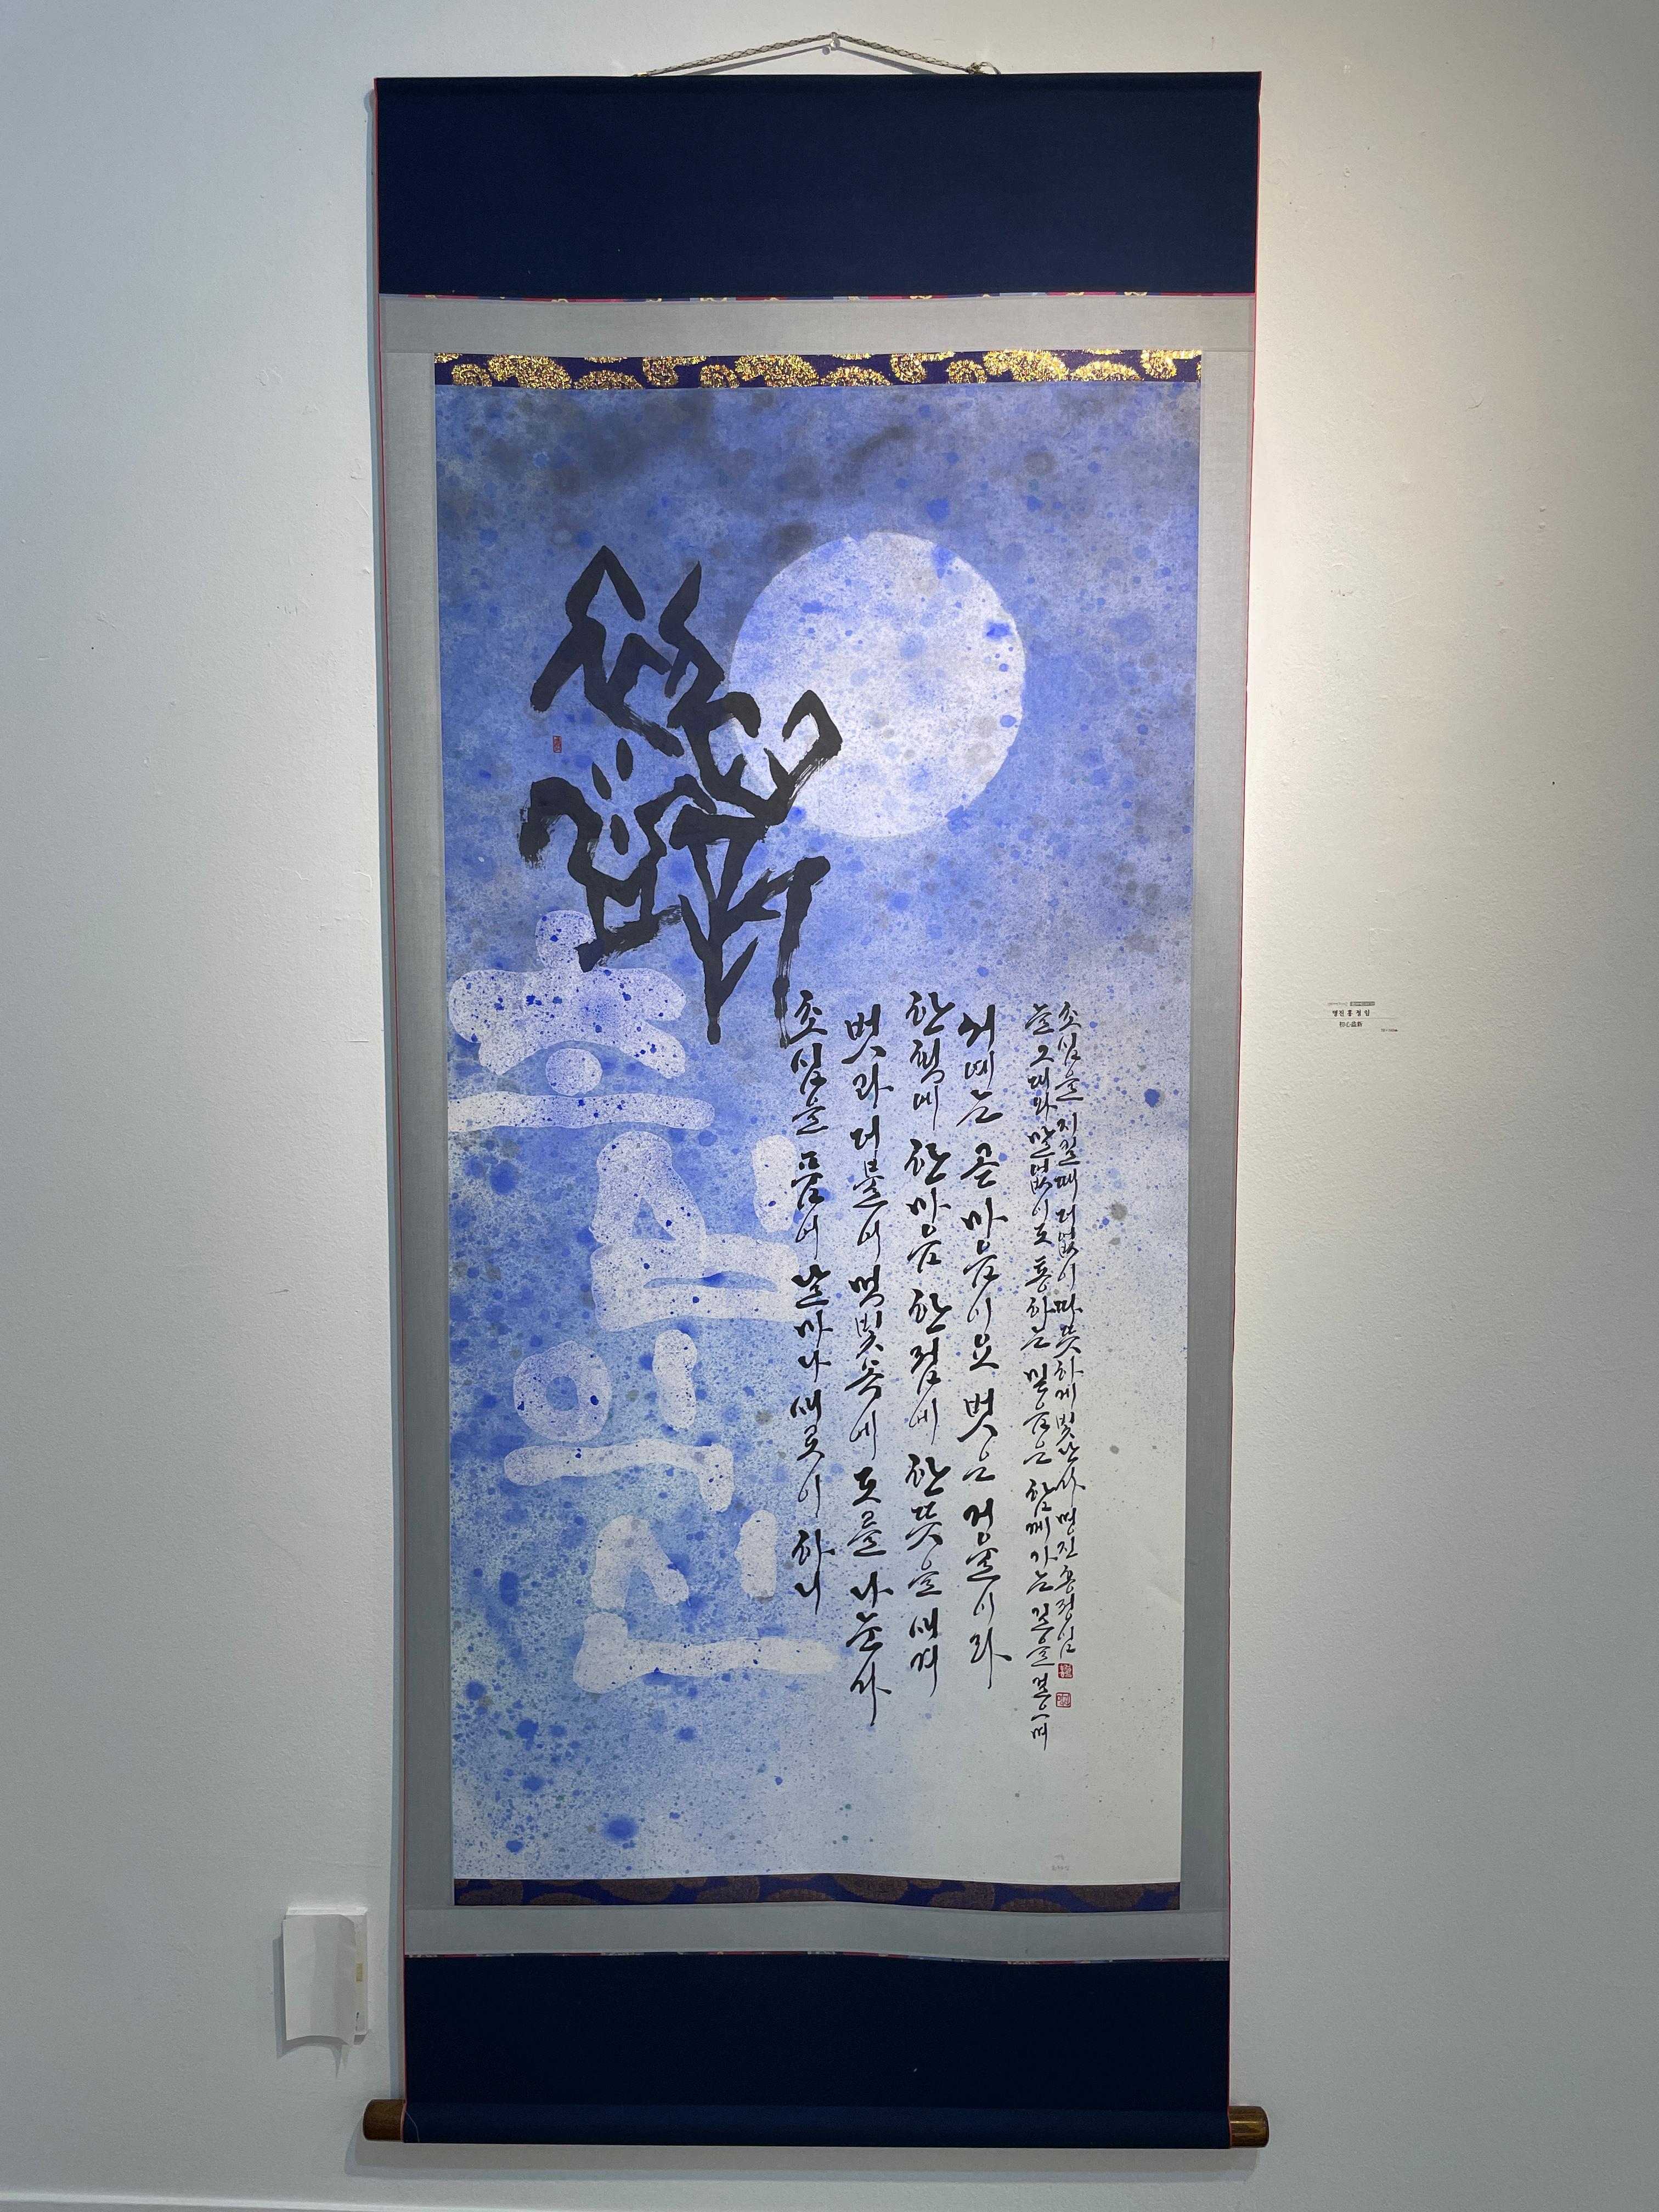 初心益新
초심익신
초심을 품어 날마다 새로이 하니
벗과 더불어 먹빛 속에 도를 나눈다
한획에 한마음 한점에 한뜻을 새겨
서예는 곧 마음이요 벗은 거울이라
늘 그대와 말없이도 통하는 믿음은 함께 가는 길을 걸으며
초심을 지킬때 더없이 따뜻하게 빛난다 명진 홍정임
명진 홍 정 임
初心益新